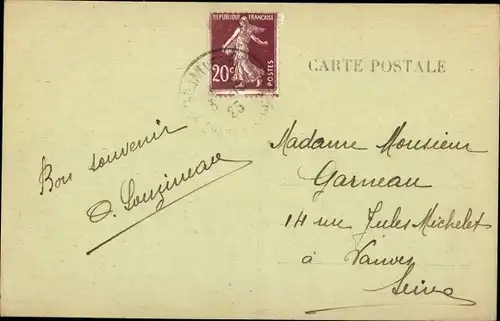 REPUBLIQUE FRANÇAISE
20c POSTES
CARTE POSTALE
Bon souvenir
Madame Monsieur
Garneau
14 rue Jules Michelet
à Vanves
Seine